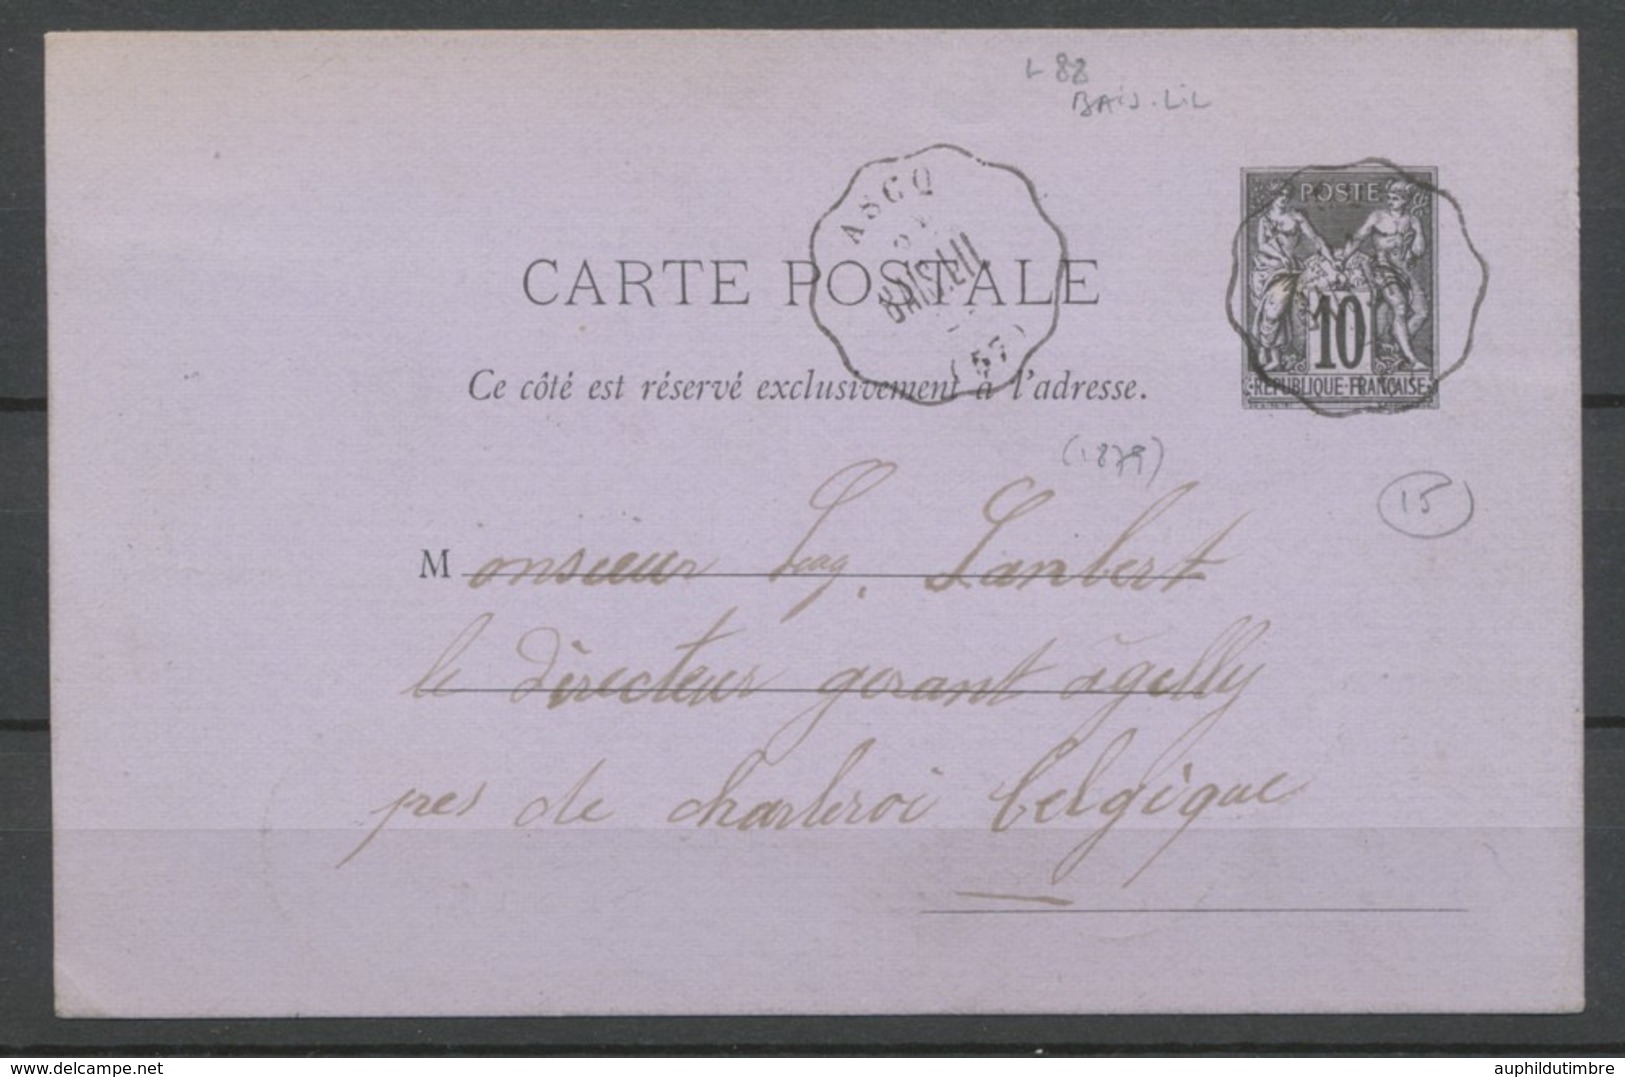 L 88
BAIS.LIL
POSTE
10
RÉPUBLIQUE FRANÇAISE
ASCQ
BAIS.LIL
(57)
CARTE POSTALE
Ce côté est réservé exclusivement à l'adresse.
(1879)
15
Monsieur Lambert
le directeur gerant à gilly
pres de charleroi belgique
auphildutimbre